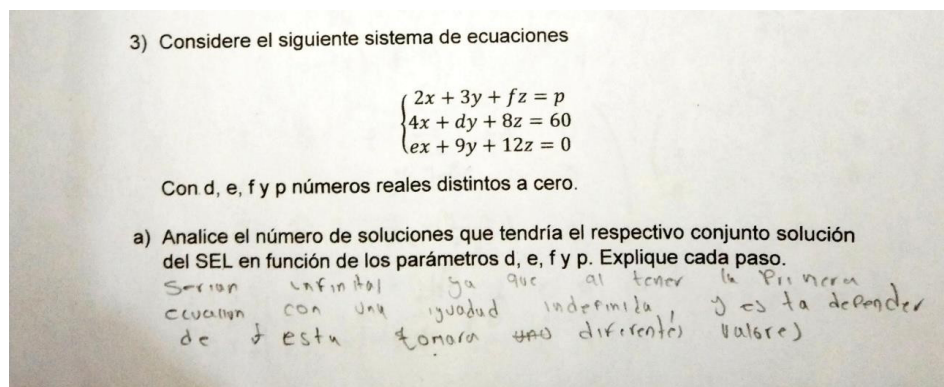 3) Considere el siguiente sistema de ecuaciones
2x + 3y + fz = p
4x + dy + 8z = 60
ex + 9y + 12z = 0
Con d, e, f y p números reales distintos a cero.
a) Analice el número de soluciones que tendría el respectivo conjunto solución
del SEL en función de los parámetros d, e, f y p. Explique cada paso.
Serian infinitas ya que al tener la Primera
ecuacion con una igualdad indefinida, y esta depender
de f esta tomara diferentes valores